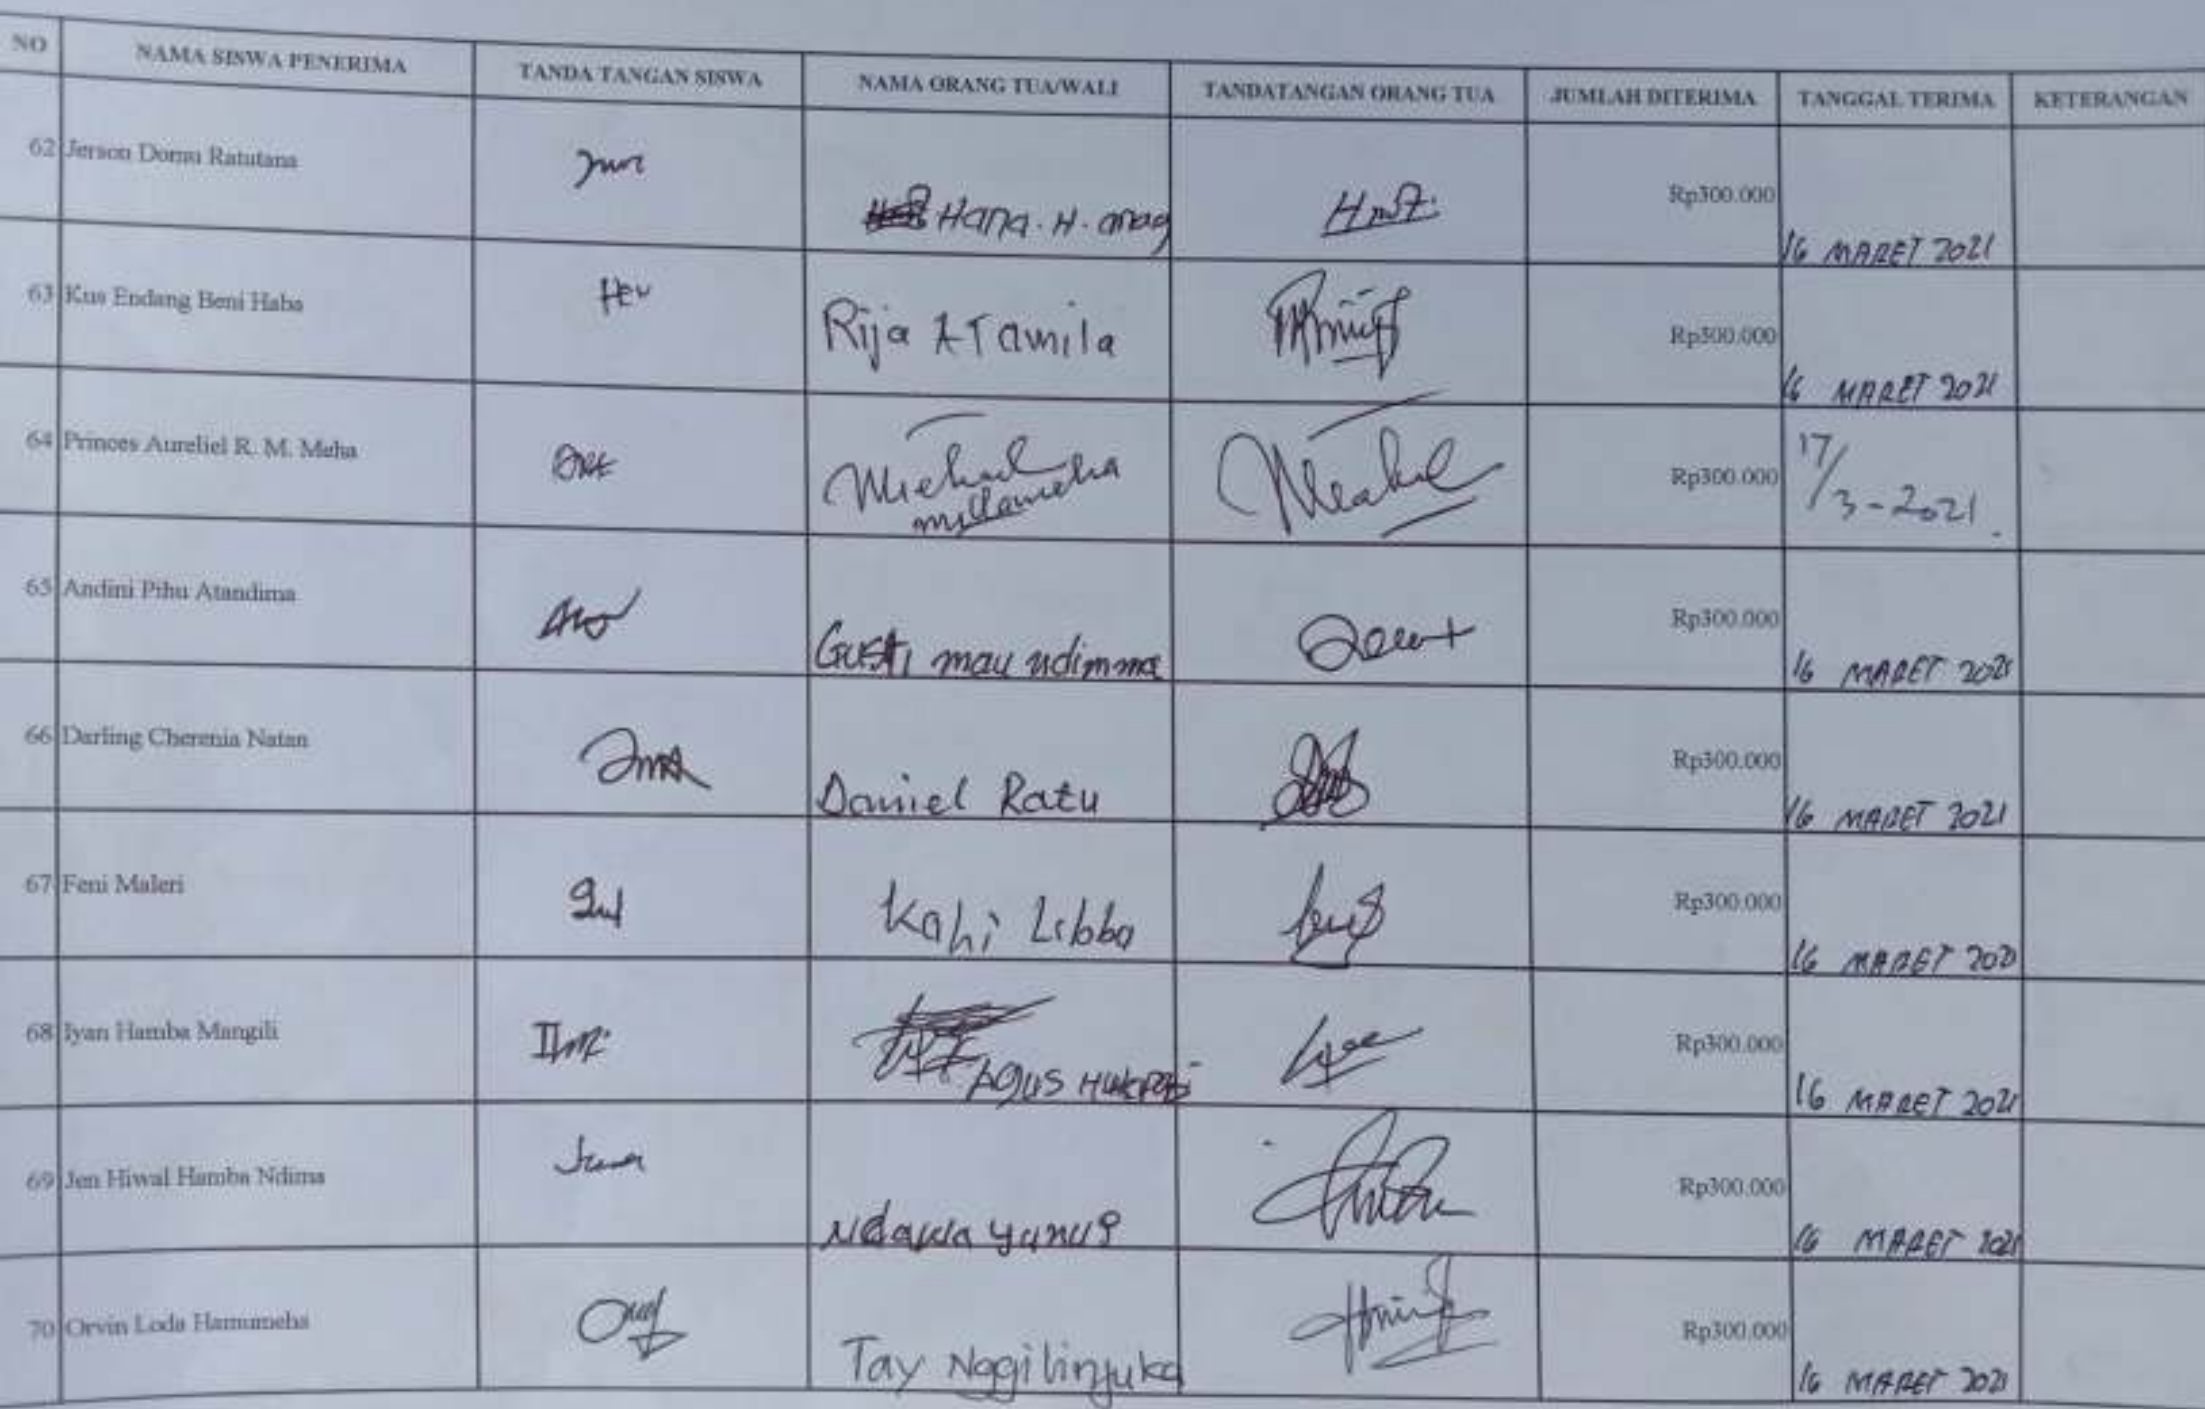 NO NAMA SISWA PENERIMA TANDA TANGAN SISWA NAMA ORANG TUA/WALI TANDATANGAN ORANG TUA JUMLAH DITERIMA TANGGAL TERIMA KETERANGAN
62 Jerson Domu Ratutana Hana. H. Rp300.000 16 MARET 2021
63 Kus Endang Beni Haba Rija A Tamila Rp300.000 16 MARET 2021
64 Princes Aureliel R. M. Meha Rp300.000 17/3-2021
65 Andini Pihu Atandima Gusti mau ndimma Rp300.000 16 MARET 2021
66 Darling Cherenia Natan Daniel Ratu Rp300.000 16 MARET 2021
67 Feni Maleri Kahi Libba Rp300.000 16 MARET 2021
68 Iyan Hamba Mangili Agus Rp300.000 16 MARET 2021
69 Jen Hiwal Hamba Ndima Ndawa yunus Rp300.000 16 MARET 2021
70 Orvin Loda Hamumeha Tay Rp300.000 16 MARET 2021